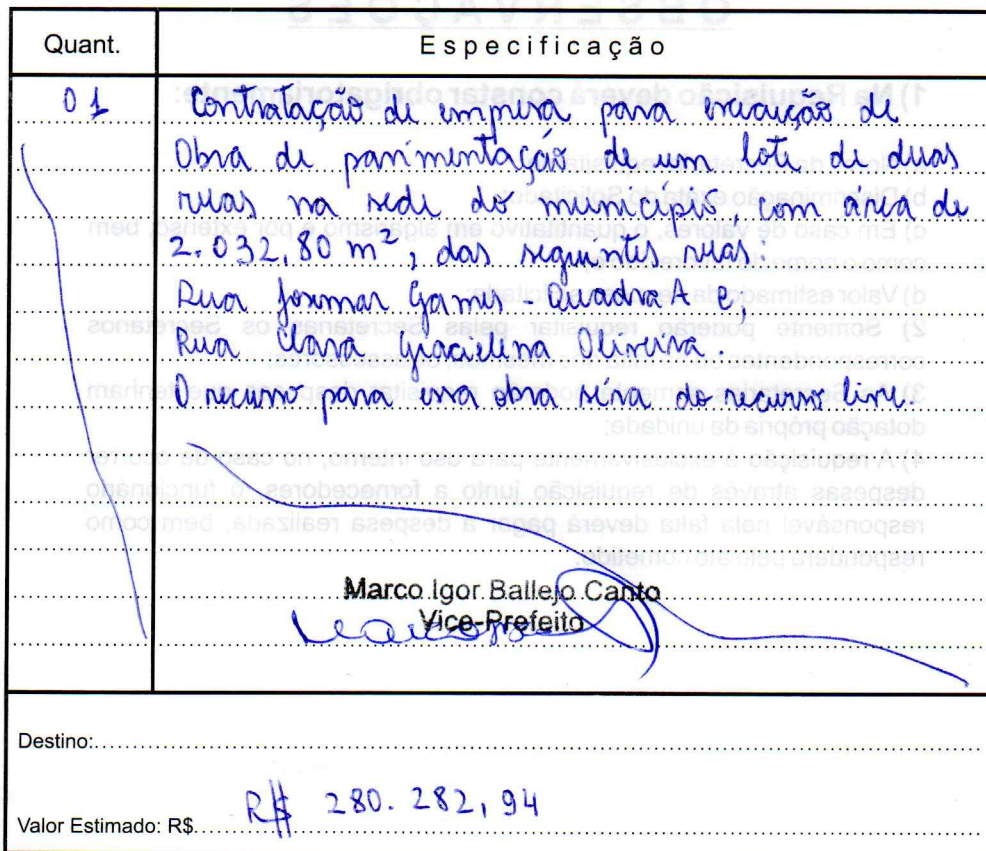 OBSERVAÇÕES
Quant. Especificação
01 Contratação de empresa para execução de
Obra de pavimentação de um lote de duas
ruas na sede do município, com área de
2.032,80 m², das seguintes ruas:
Rua Josimar Gomes - Quadra A e;
Rua Clara Gracielina Oliveira.
O recurso para essa obra será do recurso livre.
Marco Igor Ballejo Canto
Vice-Prefeito
Destino:
Valor Estimado: R$ R$ 280.282,94